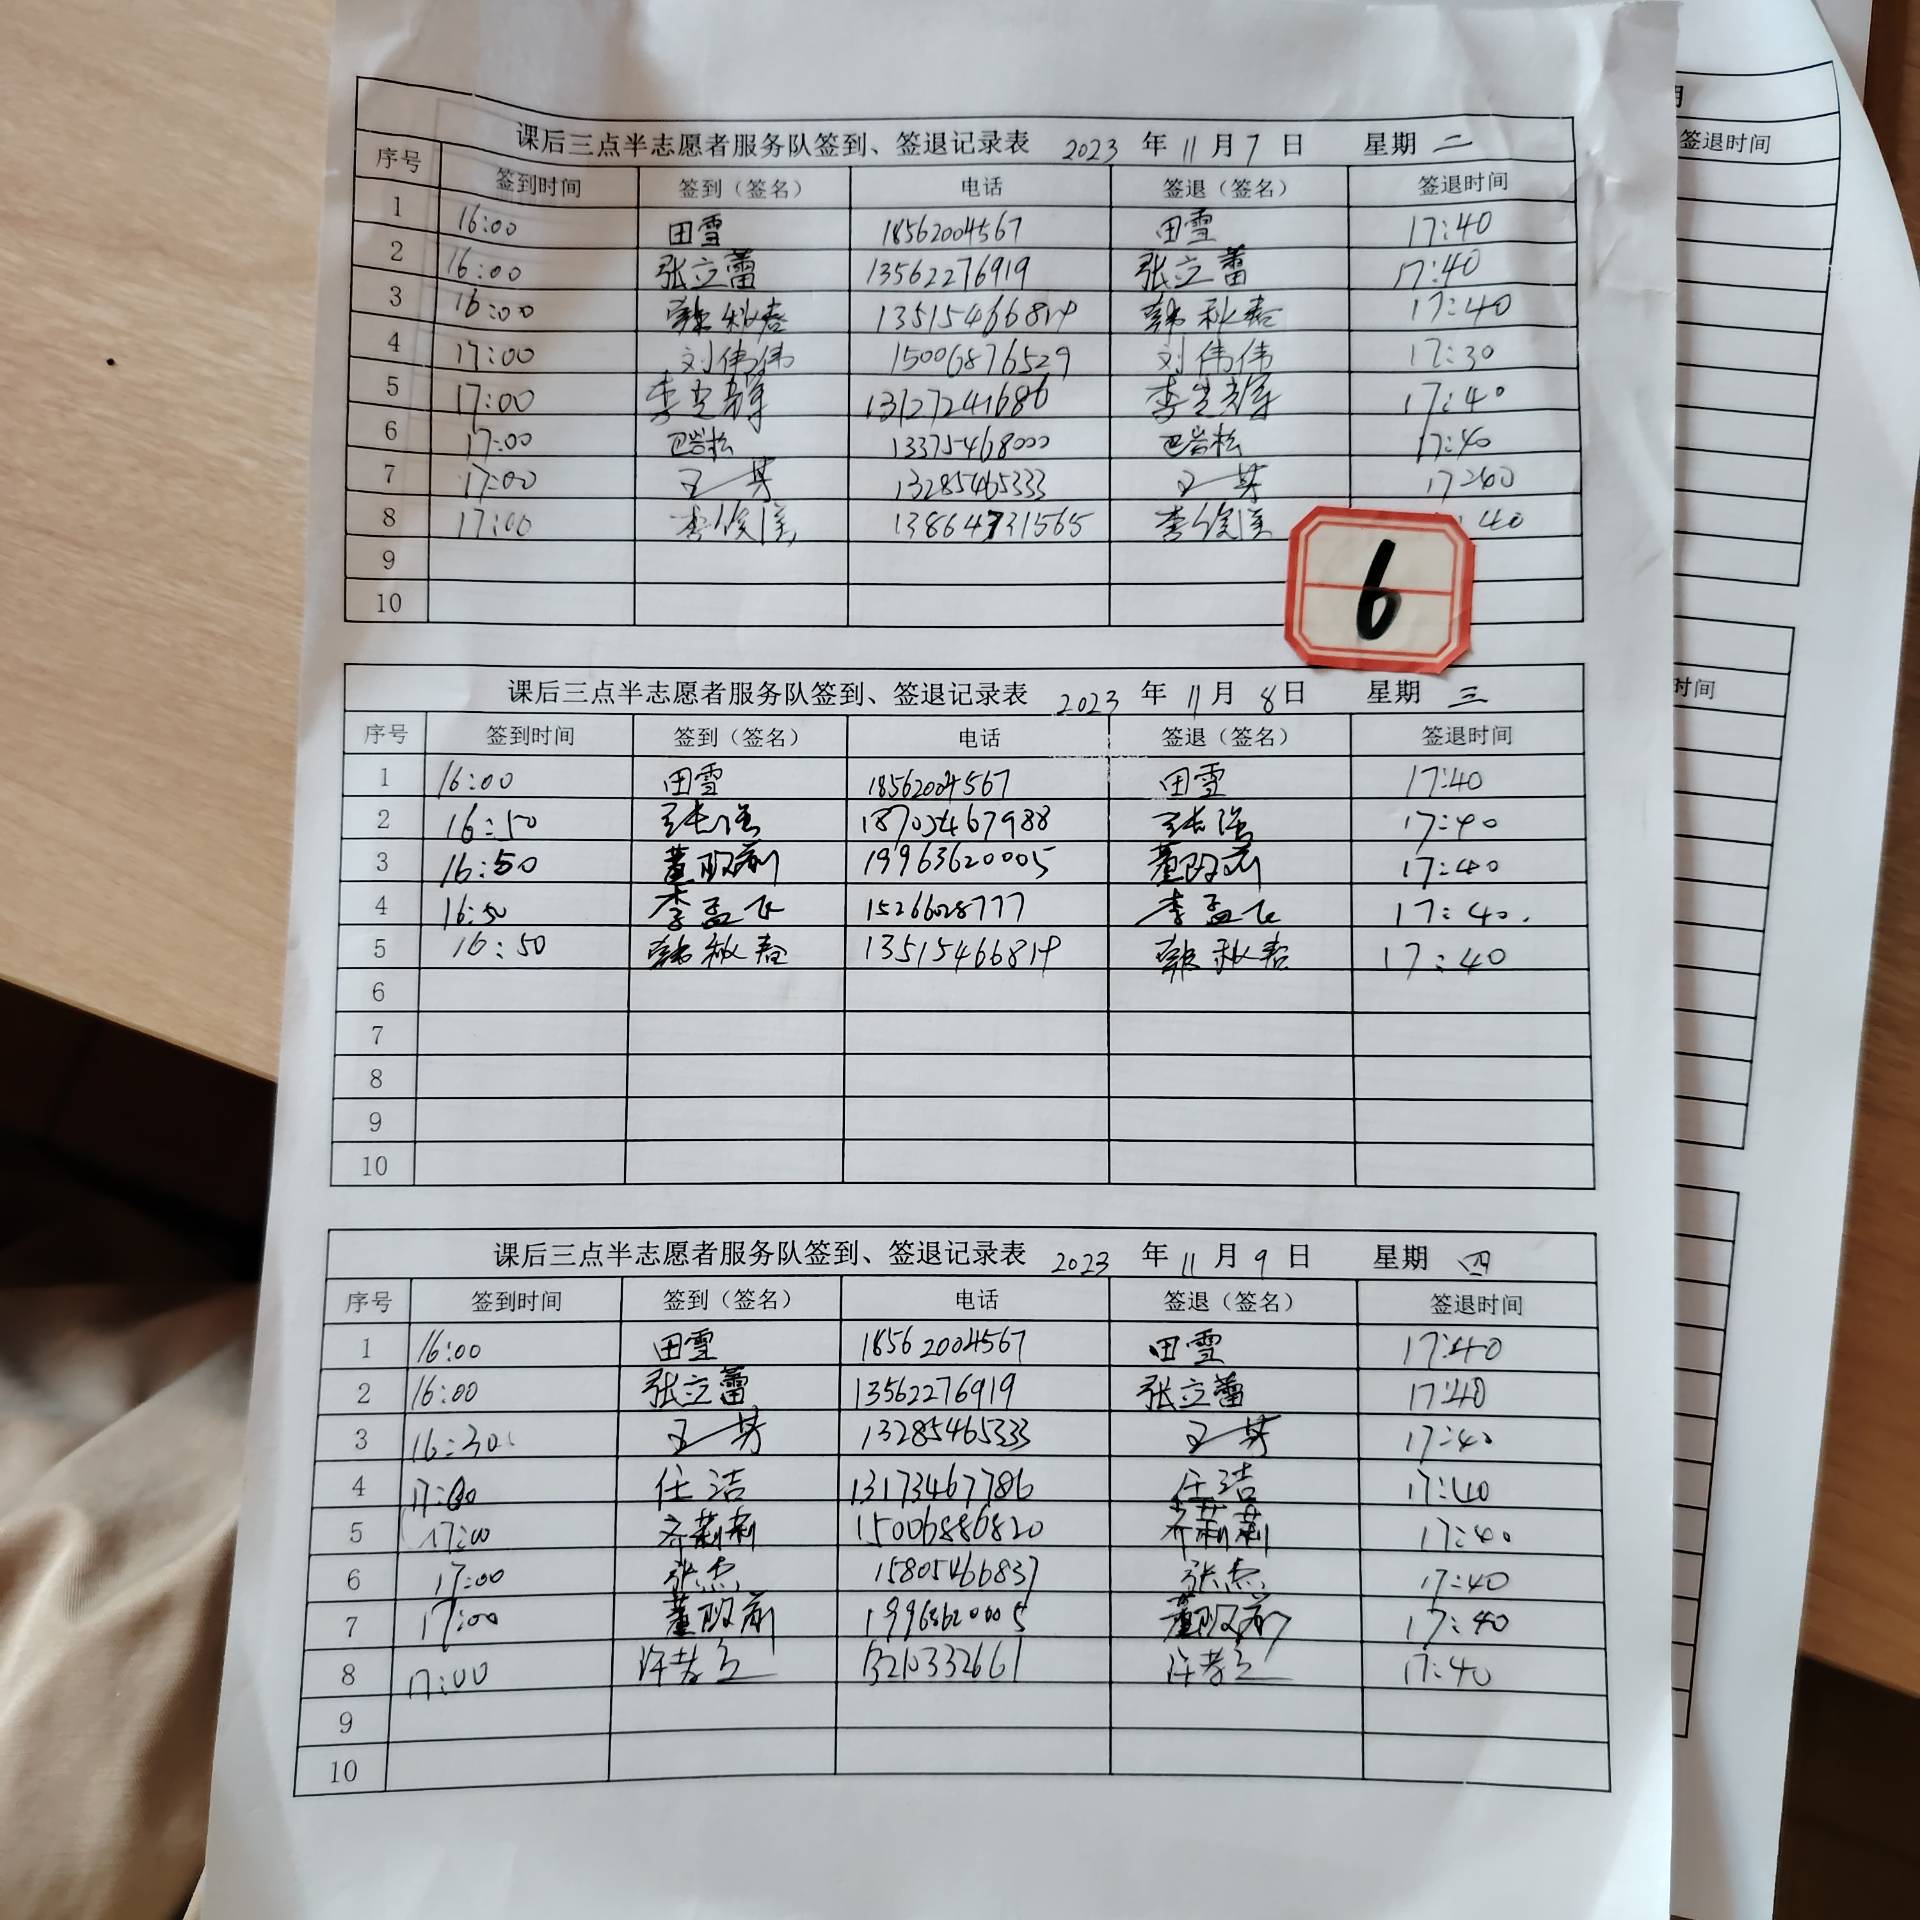 课后三点半志愿者服务队签到、签退记录表 2023 年 11 月 7 日 星期 二
序号 签到时间 签到（签名） 电话 签退（签名） 签退时间
1 16:00 田雪 18562004567 田雪 17:40
2 16:00 张立蕾 13562276919 张立蕾 17:40
3 16:00 韩秋春 13515466819 韩秋春 17:40
4 17:00 刘伟伟 15006876529 刘伟伟 17:30
5 17:00 李 13127241686 李 17:40
6 17:00 巴岩松 13375468000 巴岩松 17:40
7 17:00 王芳 13285465333 王芳
8 17:00 李俊 13864731565 李俊 :40
9
10
6
课后三点半志愿者服务队签到、签退记录表 2023 年 11 月 8 日 星期 三
序号 签到时间 签到（签名） 电话 签退（签名） 签退时间
1 16:00 田雪 18562004567 田雪 17:40
2 16:50 17:40
3 16:50 董 19963620005 董 17:40
4 16:50 李孟飞 15266028777 李孟飞 17:40.
5 16:50 韩秋春 13515466819 韩秋春 17:40
6
7
8
9
10
课后三点半志愿者服务队签到、签退记录表 2023 年 11 月 9 日 星期 四
序号 签到时间 签到（签名） 电话 签退（签名） 签退时间
1 16:00 田雪 18562004567 田雪 17:40
2 16:00 张立蕾 13562276919 张立蕾 17:40
3 16:30 王芳 13285465333 王芳 17:40
4 17:00 任洁 13173467786 任洁 17:40
5 17:00 齐莉莉 15006886820 齐莉莉 17:40
6 17:00 张杰 15805466837 张杰 17:40
7 17:00 董 19963620005 董 17:40
8 17:00 许 13210332661 许 17:40
9
10
签退时间
时间